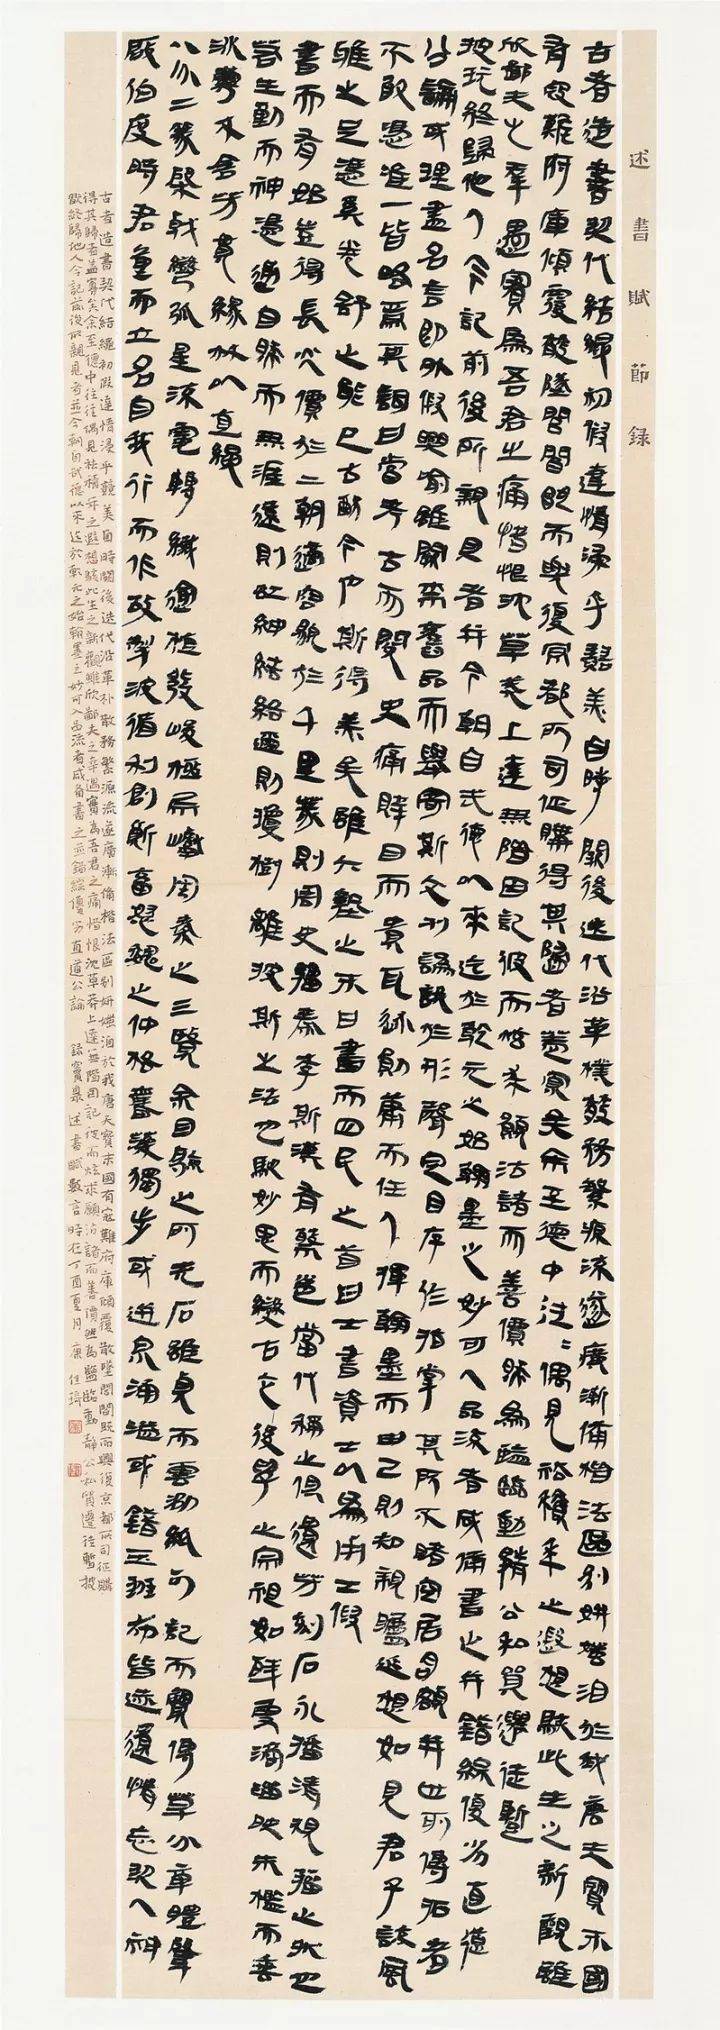 述書賦節錄
古者造書契代結繩初假達情浸乎競美自時闕後迭代沿革樸散務繁源流遂廣漸備楷法區別妍媸洎於我唐天寶末國
有寇難府庫傾覆散墜閭閻既而興復京都所司征購得其歸者蓋寡矣余至德中往往偶見祛積年之遐想駭此生之新觀雖
欣鄙夫之幸遇實為吾君之痛惜恨沈草莽上達無階因記彼而炫求願沽諸而善價然為鹽臨動靜公私貿遷徒暫
披玩終歸他人今記前後所親見者并今朝自武德以來迄於乾元之始翰墨之妙可入品流者咸備書之并錯綜優劣直道
公論或理盡名言即外假興喻雖闕乎舊品而舉寄斯文刊譌誤於形聲定目存作指掌其所不睹空居名額并世所傳拓者
不敢憑推一皆略焉其詞曰當考古而閱史痛賤目而貴耳跡則簫而任人揮翰墨而由己則知親矚延想如見君子談風
雖之足憑異卷舒之能已古酌今中斯得美矣雖六藝之末曰書而四民之首曰士書資士以為用士假
書而有始豈得長光價於二朝適容貌於千里篆則周史籀秦李斯漢有蔡邕當代稱之俱遺芳刻石永播清規籀之狀也
若生動而神憑通自然而無涯遠則虹紳結絡邇則瓊樹離披斯之法也馳妙思而變古立後學之宗祖如殘雪滴溜映朱檻而垂
冰蔓木含芳貫綠林以直繩
八分二篆棨戟彎弧星流電轉纖逾植髮峻極層巒周秦之三覽余目驗之所先石雖貞而雲紙可記而寶傳草分章體肇
厥伯度時君重而立名自我行而作故掣波循利創斷畜怒魏之仲將舊漢獨步或迸泉涌溢或錯玉班布皆遺情忘契入神
古者造書契代結繩初假達情浸乎競美自時闕後迭代沿革朴散務繁源流遂廣漸備楷法區別妍媸洎於我唐天寶末國有寇難府庫傾覆散墜閭閻既而興復京都所司征購
得其歸者蓋寡矣余至德中往往偶見祛積年之遐想駭此生之新觀雖欣鄙夫之幸遇實為吾君之痛惜恨沈草莽上達無階因記彼而炫求願沽諸而善價然為鹽臨動靜公私貿遷徒暫披
翫終歸他人今記前後所親見者并今朝自武德以來迄於乾元之始翰墨之妙可入品流者咸備書之並錯綜優劣直道公論 錄竇臮述書賦數言時在丁酉夏月